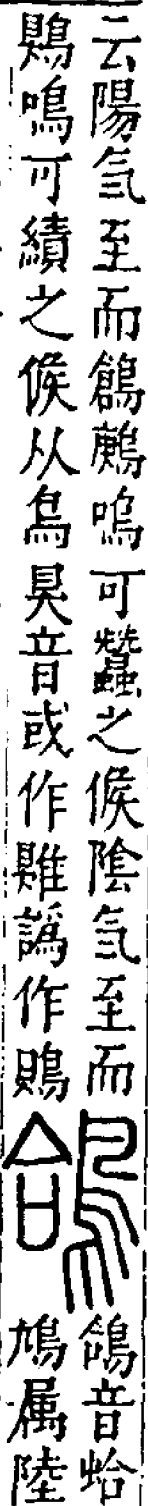 云陽气至而鶬鶊鳴可蠶之候陰气至而
鶪鳴可績之候从鳥狊音或作譌作鵙
鴿
鴿音蛤
鳩属陸